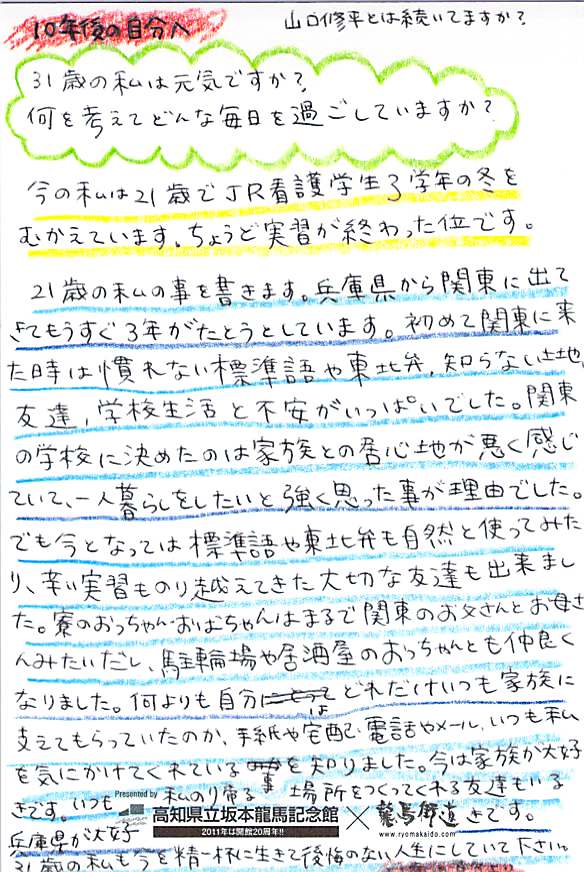 10年後の自分へ
山口修平とは続いてますか?
31歳の私は元気ですか?
何を考えてどんな毎日を過ごしていますか?
今の私は21歳でJR看護学生3学年の冬を
むかえています。ちょうど実習が終わった位です。
21歳の私の事を書きます。兵庫県から関東に出て
きてもうすぐ3年がたとうとしています。初めて関東に来
た時は慣れない標準語や東北弁、知らない土地、
友達、学校生活と不安がいっぱいでした。関東
の学校に決めたのは家族との居心地が悪く感じ
ていて、一人暮らしをしたいと強く思った事が理由でした。
でも今となっては標準語や東北弁も自然と使ってみた
り、辛い実習ものり越えてきた大切な友達も出来まし
た。寮のおっちゃん・おばちゃんはまるで関東のお父さんとお母さ
んみたいだし、駐輪場や居酒屋のおっちゃんとも仲良く
なりました。何よりも自分は どれだけいつも家族に
支えてもらっていたのか、手紙や宅配・電話やメール、いつも私
を気にかけてくれている事を知りました。今は家族が大好
きです。いつも私のり帰る場所をつくってくれる友達もいる
兵庫県が大好きです。
31歳の私も今を精一杯に生きて後悔のない人生にしていて下さい。
Presented by 高知県立坂本龍馬記念館 × 龍馬街道
2011年は開館20周年!!
www.ryomakaido.com